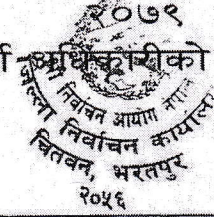 २०७९
अधिकारीको
निर्वाचन आयोग नेपाल
जिल्ला निर्वाचन कार्यालय
चितवन, भरतपुर
२०५६